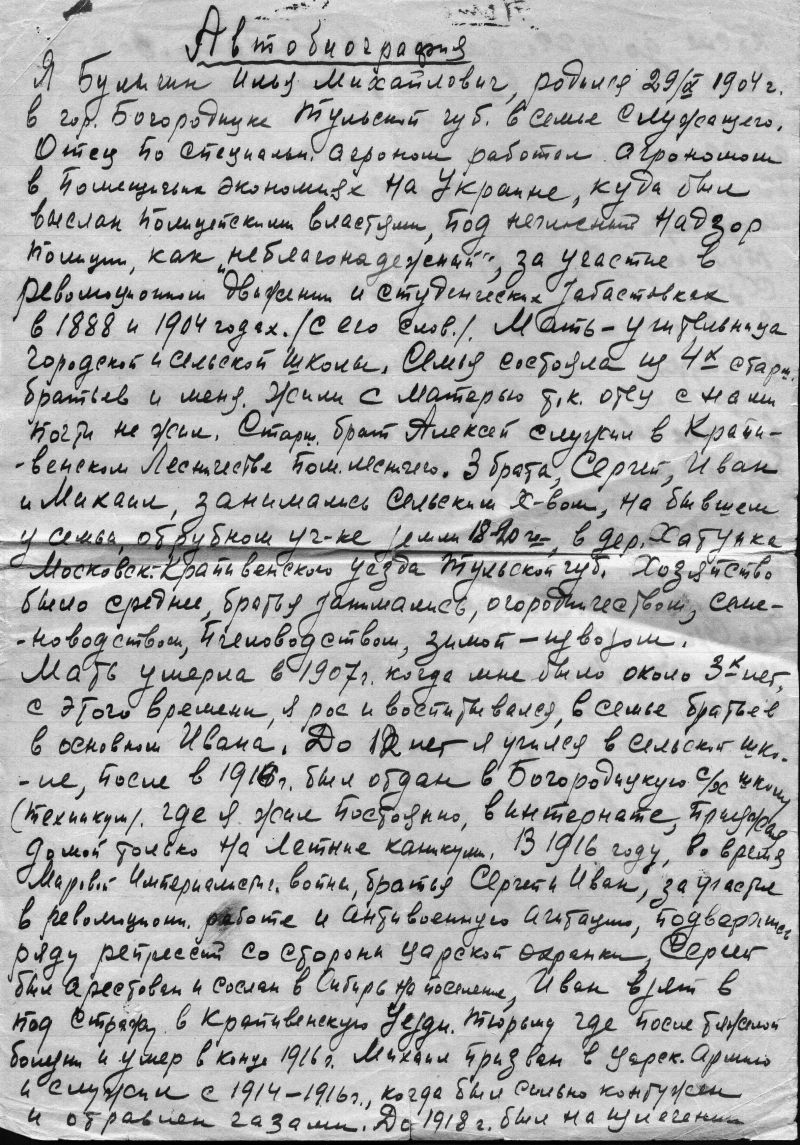 Автобиография
Я Булыгин Илья Михайлович, родился 29/IX 1904 г.
в гор. Богородицке Тульской губ. в семье служащего.
Отец по специальн. агроном работал агрономом
в помещичьих экономиях на Украине, куда был
выслан полицейскими властями, под негласный надзор
полиции, как „неблагонадежный", за участие в
революционном движении и студенческих забастовках
в 1888 и 1904 годах. /с его слов./. Мать – учительница
городской и сельской школы. Семья состояла из 4х старш.
братьев и меня. Жили с матерью т.к. отец с нами
почти не жил. Старш. брат Алексей служил в Крапи-
-венском Лесничестве пом. лесничего. 3 брата, Сергей, Иван
и Михаил, занимались сельским х-вом, на бывшем
у семьи, отрубном уч-ке земли 18-20 га, в дер. Хатунка
Московск. Крапивенского уезда Тульской губ. Хозяйство
было среднее, братья занимались, огородничеством, семе-
-новодством, пчеловодством, зимой – извозом.
Мать умерла в 1907 г. когда мне было около 3х лет,
с этого времени, я рос и воспитывался, в семье братьев
в основном Ивана. До 12 лет я учился в сельской шко-
-ле, после в 1916 г. был отдан в Богородицкую с/хс школу
(техникум). где я жил постоянно, в интернате, приезжая
домой только на летние каникулы. В 1916 году, во время
Мировой Империалистич. войны, братья Сергей и Иван, за участие
в революционн. работе и антивоенную агитацию, подверглись
ряду репрессий со стороны царской охранки, Сергей
был арестован и сослан в Сибирь на поселение, Иван взят в
под стражу в Крапивенскую Уездн. тюрьму где после тяжелой
болезни и умер в конце 1916 г. Михаил призван в царск. Армию
и служил с 1914–1916 г., когда был сильно контужен
и отравлен газами. До 1918 г. был на излечении